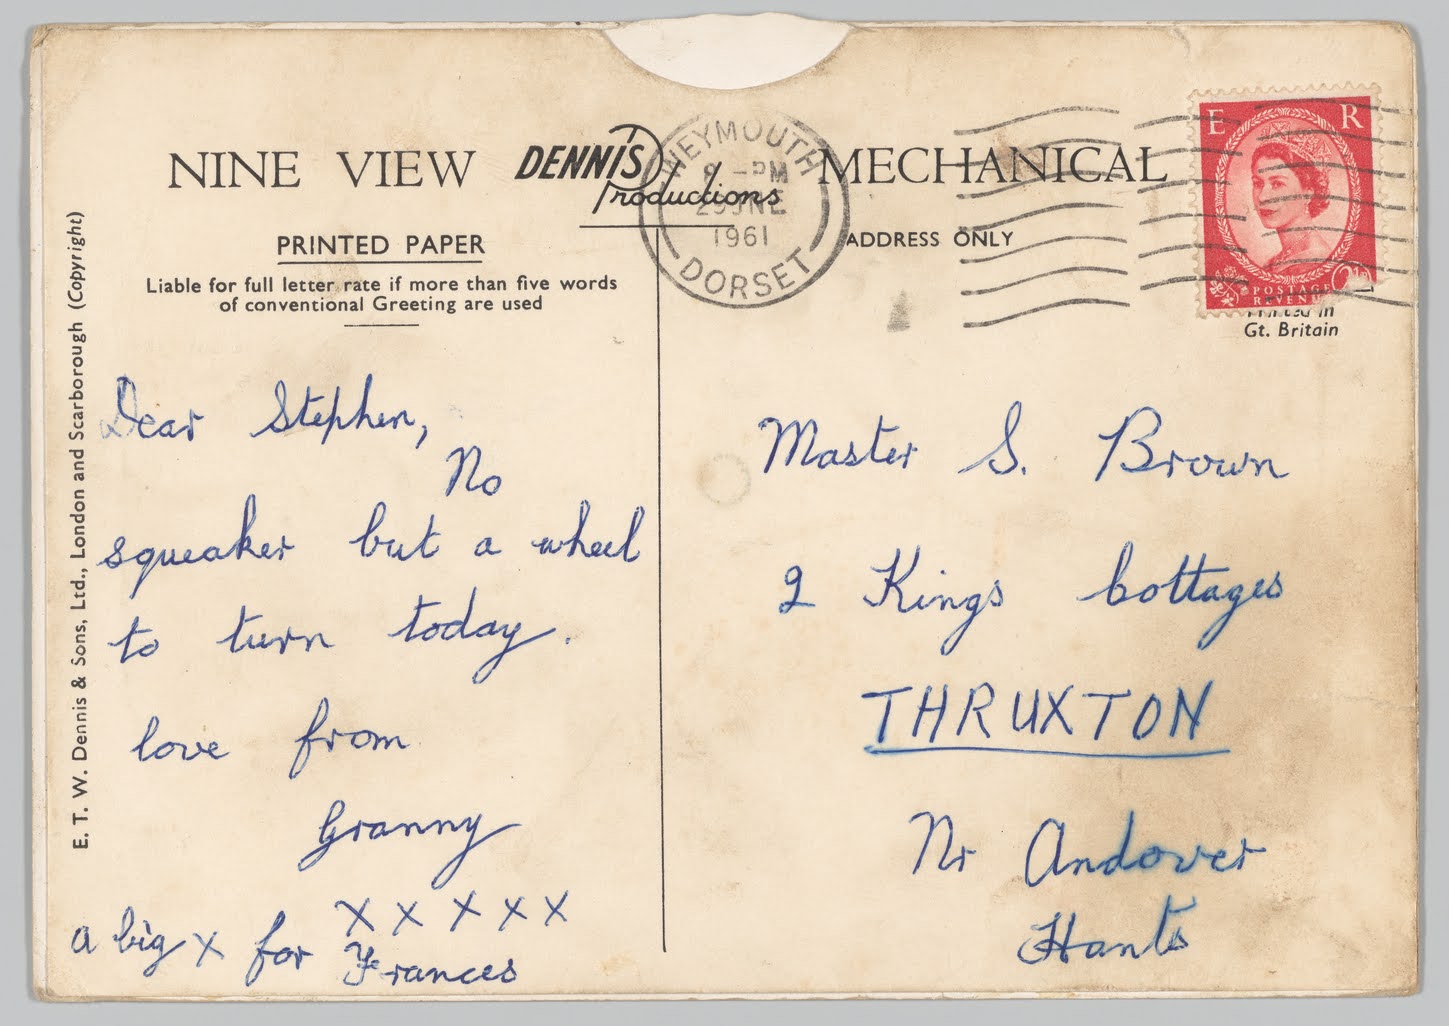 NINE VIEW DENNIS Productions MECHANICAL
PRINTED PAPER
Liable for full letter rate if more than five words
of conventional Greeting are used
ADDRESS ONLY
WEYMOUTH
8 -PM
29 JNE
1961
DORSET
E R
POSTAGE
REVENUE
2½
Printed in
Gt. Britain
E. T. W. Dennis & Sons, Ltd., London and Scarborough (Copyright)
Dear Stephen,
No
squeaker but a wheel
to turn today.
love from
Granny
x x x x x
a big x for Frances
Master S. Brown
2 Kings Cottages
THRUXTON
Nr Andover
Hants